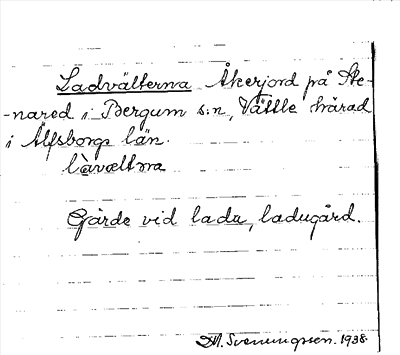 Ladvälterna Åkerjord på Ste-
-nared i Bergum s:n, Vättle härad
i Älfsborgs län.
làvæltṇa
Gärde vid lada, ladugård.
M. Svenungsson. 1938